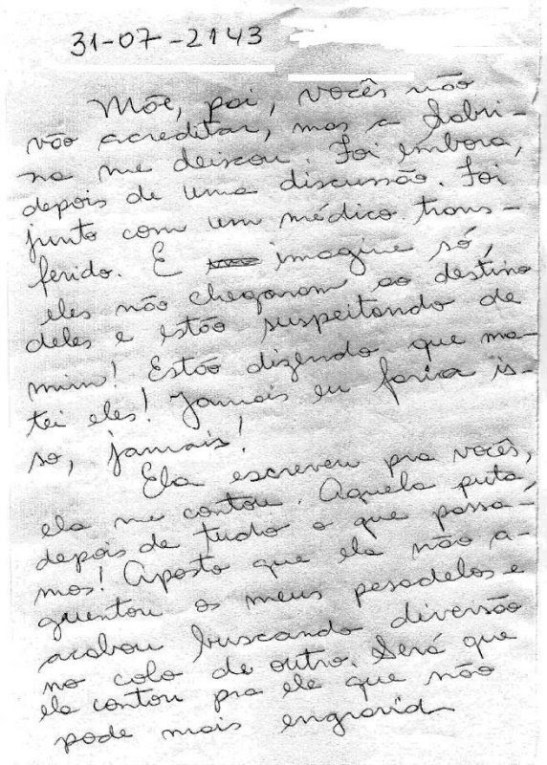 31-07-2143
Mãe, pai, vocês não
vão acreditar, mas a Sabri-
na me deixou. Foi embora,
depois de uma discussão. Foi
junto com um médico trans-
ferido. E imagine só,
eles não chegaram ao destino
deles e estão suspeitando de
mim! Estão dizendo que ma-
tei eles! Jamais eu faria is-
so, jamais!
Ela escreveu pra vocês,
ela me contou. Aquela puta,
depois de tudo o que passa-
mos! Aposto que ela não a-
guentou os meus pesadelos e
acabou buscando diversão
no colo de outro. Será que
ela contou pra ele que não
pode mais engravid